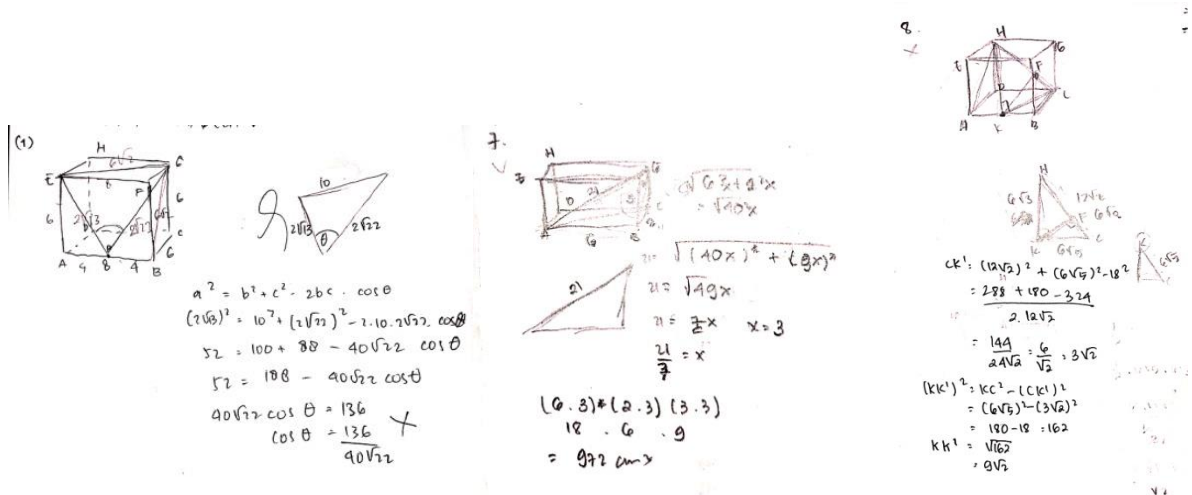 (1)
H
6√2
G
E
t
F
6
6
2√13
2√22
A
4
8
4
B
C
6
10
2√13
θ
2√22
a² = b² + c² - 2bc . cosθ
(2√13)² = 10² + (2√22)² - 2.10.2√22. cosθ
52 = 100 + 88 - 40√22 cosθ
52 = 188 - 40√22 cosθ
40√22 cos θ = 136
cos θ = 136
40√22
7.
H
21
D
A
√6²x+2²x
= √40x
21 = √(40x)² + (9x)²
21
21 = √49x
21 = 7x x=3
21
7
= x
(6.3)*(2.3) (3.3)
18 . 6 . 9
= 972 cm³
8.
H
G
E
F
D
C
A
K
B
H
6√3
12√2
6√2
K
6√5
C
6√5
CK' = (12√2)² + (6√5)² - 18²
= 288 + 180 - 324
2.12√2
= 144
24√2
= 6
√2
= 3√2
(KK')² = KC² - (CK')²
= (6√5)² - (3√2)²
= 180 - 18 = 162
KK' = √162
= 9√2